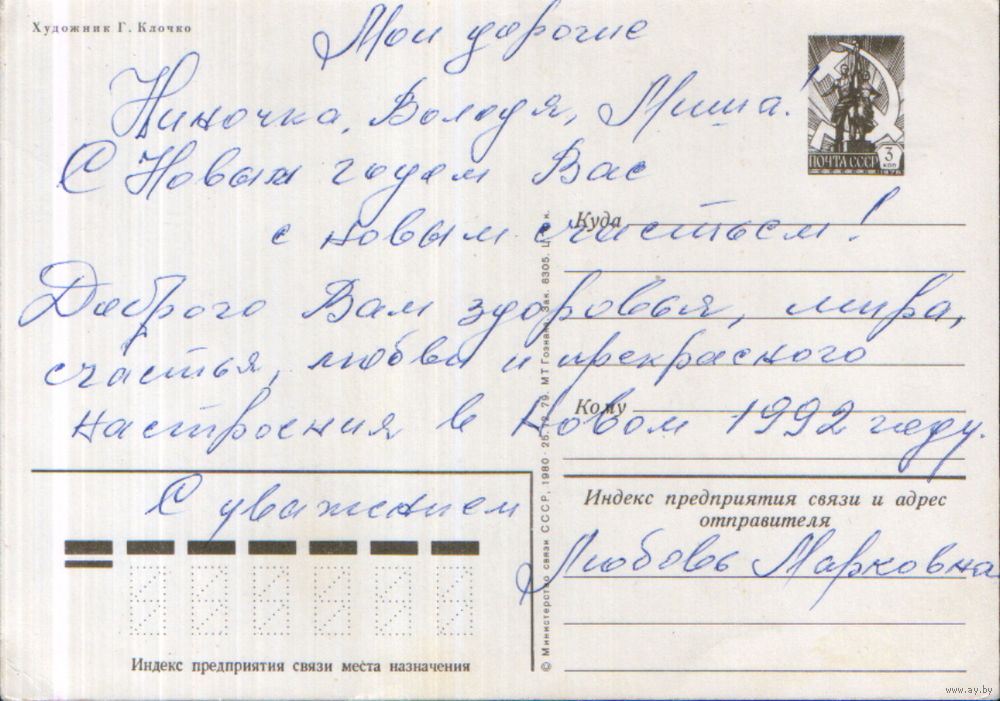 Художник Г. Клочко
Мои дорогие
Ниночка, Володя, Миша!
С Новым годом Вас
с новым счастьем!
Доброго Вам здоровья, мира,
счастья, любви и прекрасного
настроения в Новом 1992 году.
С уважением
Любовь Марковна
ПОЧТА СССР
3
КОП
Куда
Кому
Индекс предприятия связи и адрес
отправителя
Индекс предприятия связи места назначения
© Министерство связи СССР, 1980
МТ Гознака. Зак. 8305.
www.ay.by